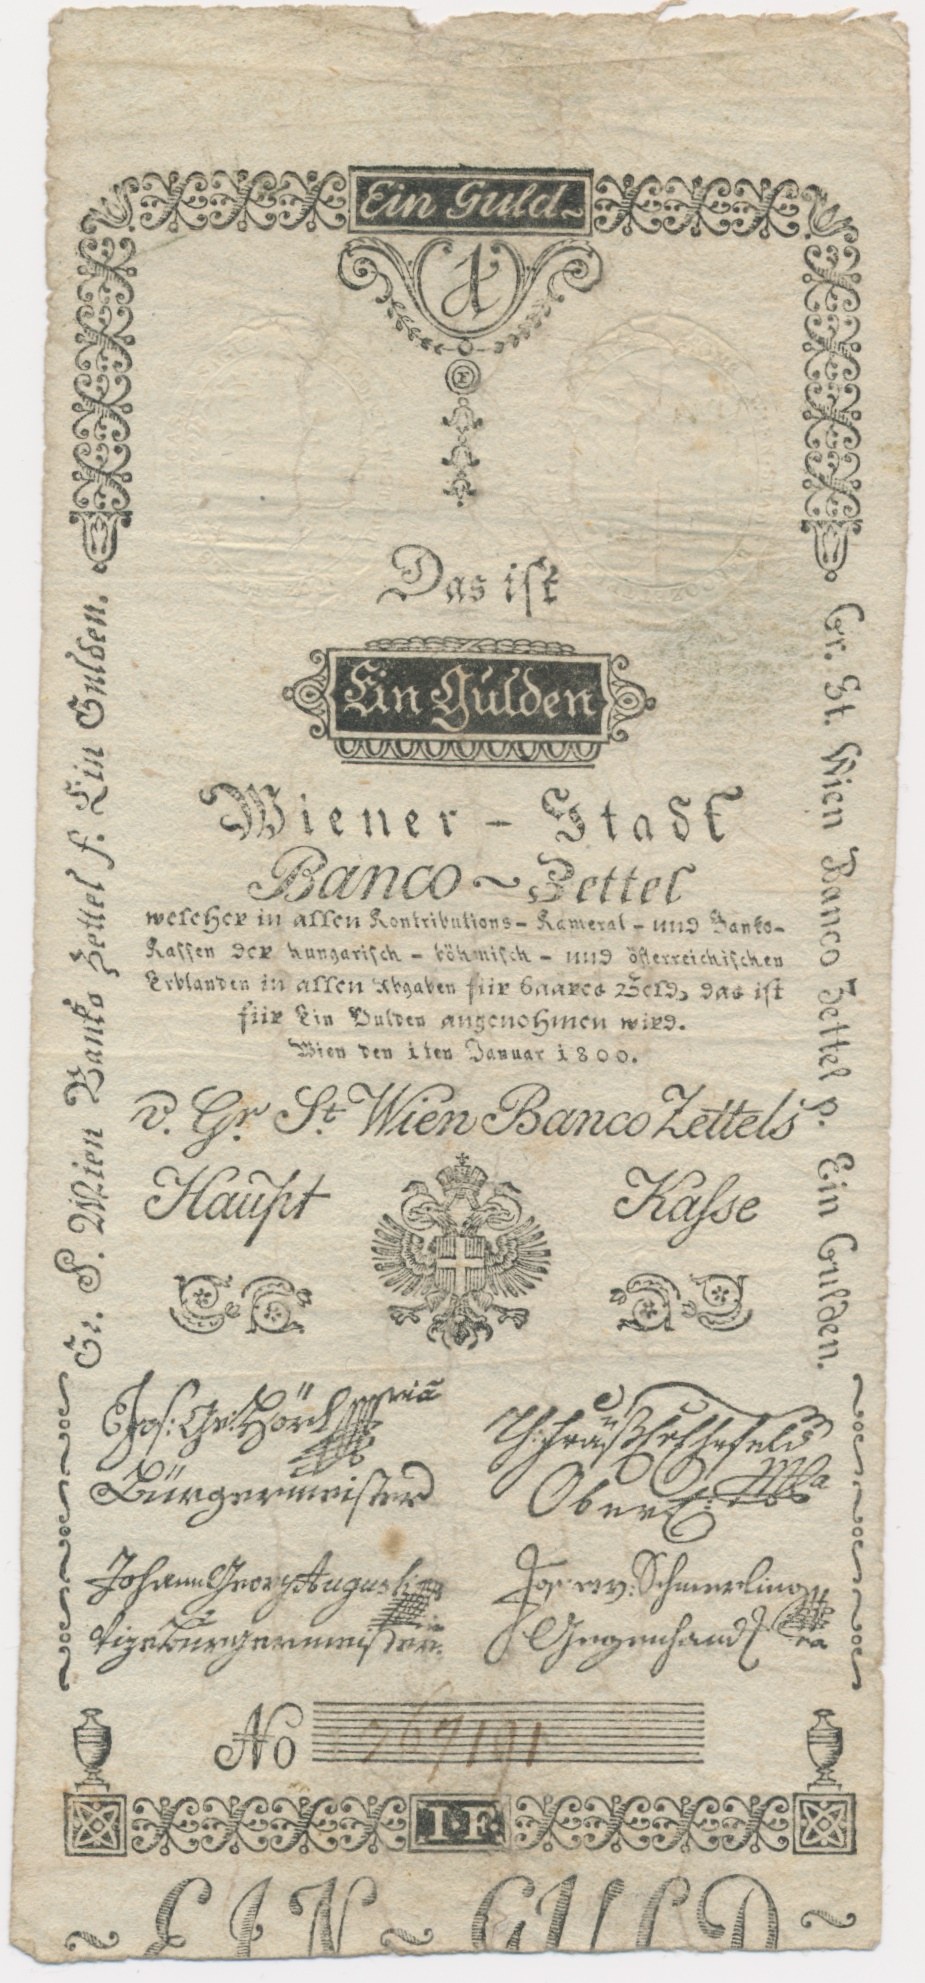 Ein Guld~
1
Das ist
Ein Gulden
Wiener - Stadt
Banco ~ Zettel
welcher in allen Kontributions- Kameral- und Banko-
Kassen der hungarisch- böhmisch- und österreichischen
Erblanden in allen Abgaben für baares Geld, das ist
für Ein Gulden angenohmen wird.
Wien den 1ten Januar 1800.
v. Gr. St. Wien Banco Zettels
Haupt Kasse
Gr. S. Wien Banko Zettel f. Ein Gulden.
Gr. St. Wien Banco Zettel p. Ein Gulden.
Jos: Ge: Hörl
Bürgermeister
Ober
Johann Georg Augusti
Vizebürgermeister
v: Schmerling
Gegenhand
No 767191
I·F.
~ EIN ~ GULD ~